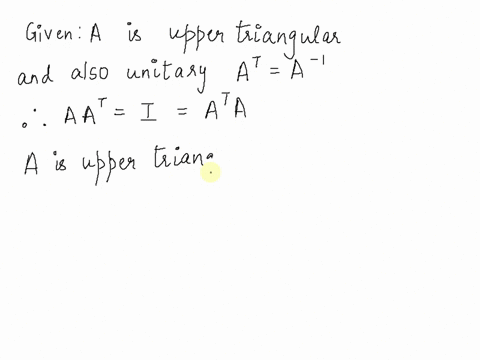 Given: A is upper triangular
and also unitary A^T = A^-1
∴ AA^T = I = A^T A
A is upper triang